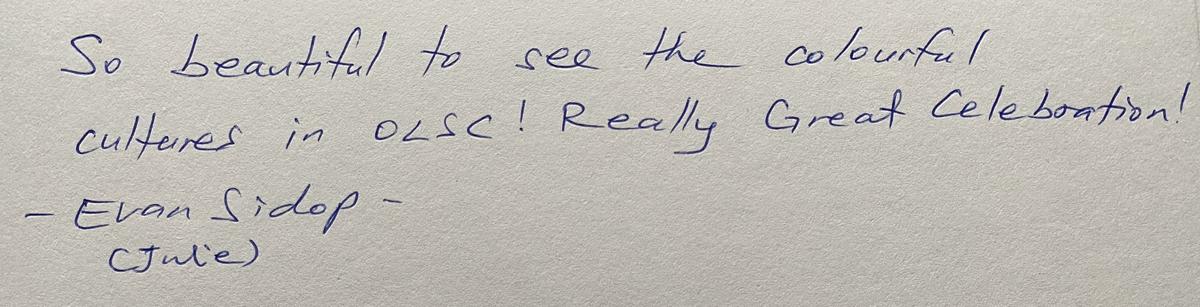 So beautiful to see the colourful
cultures in OLSC! Really Great Celebration!
- Evan Sidop -
(Julie)